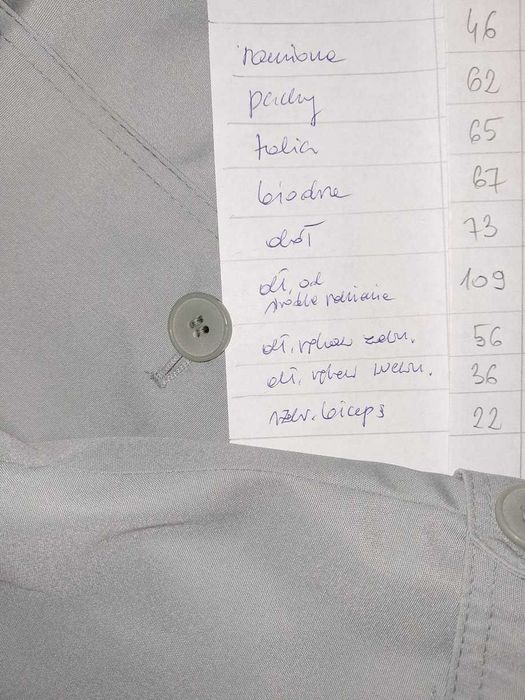 ramiona 46
pachy 62
talia 65
biodra 67
dół 73
dł. od 109
środka ramienia
dł. rękaw zewn. 56
dł. rękaw wewn. 36
szer. biceps 22